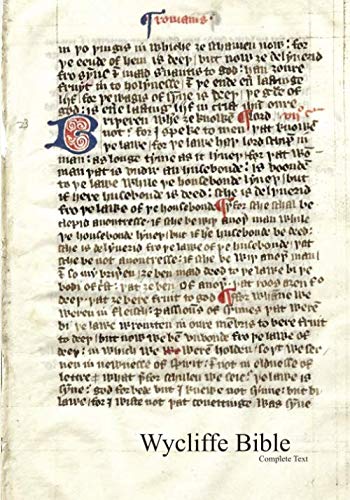 Romanis
in þo þingis in whiche ȝe schamen now : for
þe eende of hem is deeþ / but now ȝe delyuerid
fro synne & maad seruauntis to god : han ȝoure
fruyt in to holynesse & þe ende euerlastinge
lijf / for þe wagis of synne is deeþ / þe grace of
god : is euerlastinge lijf in crist oure
Briþeren wher ȝe knowen lord
not : for I speke to men þat knowen
þe lawe / for þe lawe haþ lordschip in a
man : as longe tyme as it lyueþ / for þat wo
man þat is vndir an housebonde : is bounde
to þe lawe while þe housebonde lyueþ / but if
hir housebonde is deed : sche is delyuered
fro þe lawe of þe housebonde þerfor sche schal be
clepid auoutresse : if sche be wiþ anoþer man while
þe housebonde lyueþ / but if hir housebonde be deed :
sche is delyuered fro þe lawe of þe housebonde / þat
sche be not auoutresse : if sche be wiþ anoþer man /
& so my briþeren ȝe ben maad deed to þe lawe bi þe
bodi of crist : þat ȝe ben of anoþer / þat roos aȝen fro
deeþ / þat ȝe bere fruyt to god For whanne we
weren in fleisch : passiouns of synnes þat weren
bi þe lawe wrouȝten in oure membris to bere fruyt
to deeþ / but now we ben vnbounde fro þe lawe of
deeþ : in which we weren holden / so þat we ser
uen in newnesse of spirit : & not in eldnesse of
lettre what þerfor schulen we seie / þe lawe is
synne / god forbede / but I knewe not synne : but bi
lawe / for I wiste not þat coueitinge was synne :
Wycliffe Bible
Complete Text